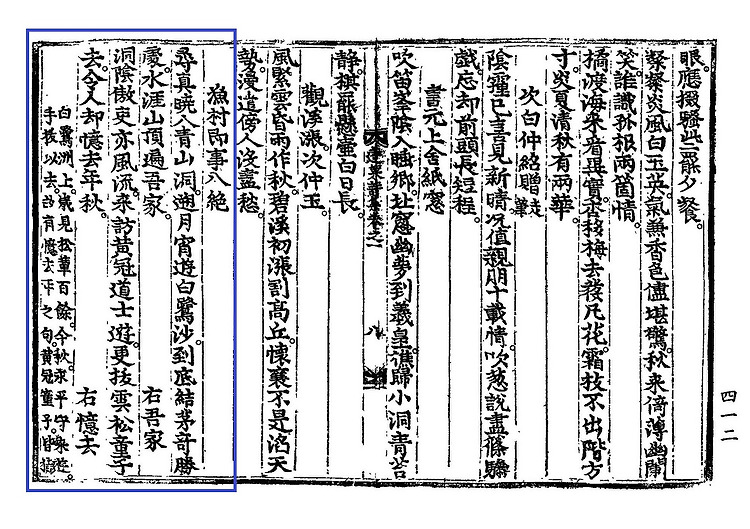 眼。應掇騷些嚼夕餐。
粲粲炎風白玉英。氣兼香色儘堪驚。秋来倚薄幽蘭
笑。誰識孫根兩箇情。
橘渡海来着異實。杏移梅去發凡花。霜枝不出階方
寸。炎夏清秋有兩華。
次白仲絽贈走筆
陰霾已喜見新晴。况值親朋十載情。吹葱說盡
戲。忘却前頭長短程。
書元上舍紙窓
吹笛荃陰入睡鄉。北窓幽夢到羲皇。譙歸小洞青苔
靜。横縣當白日長。
集卷之一 八
觀溪漲。次仲玉
風緊雲昏雨作秋。碧溪初漲割高丘。懷襄不是滔天
勢。漫道傍人沒盡愁。
漁村即事八絶
尋真曉入青山洞。遡月宵遊白鷺沙。到底結茅奇勝
處。水涯山頂遍吾家。 右吾家
洞陰傲吏亦風流。来訪黄冠道士遊。更拔雲松童子
去。今人却憶去年秋。 右憶去
白鷺洲上。見松葦百餘。今秋永平守來遊。
手拔以去。故有憶去年之句。黄冠童子。皆指。
四一二